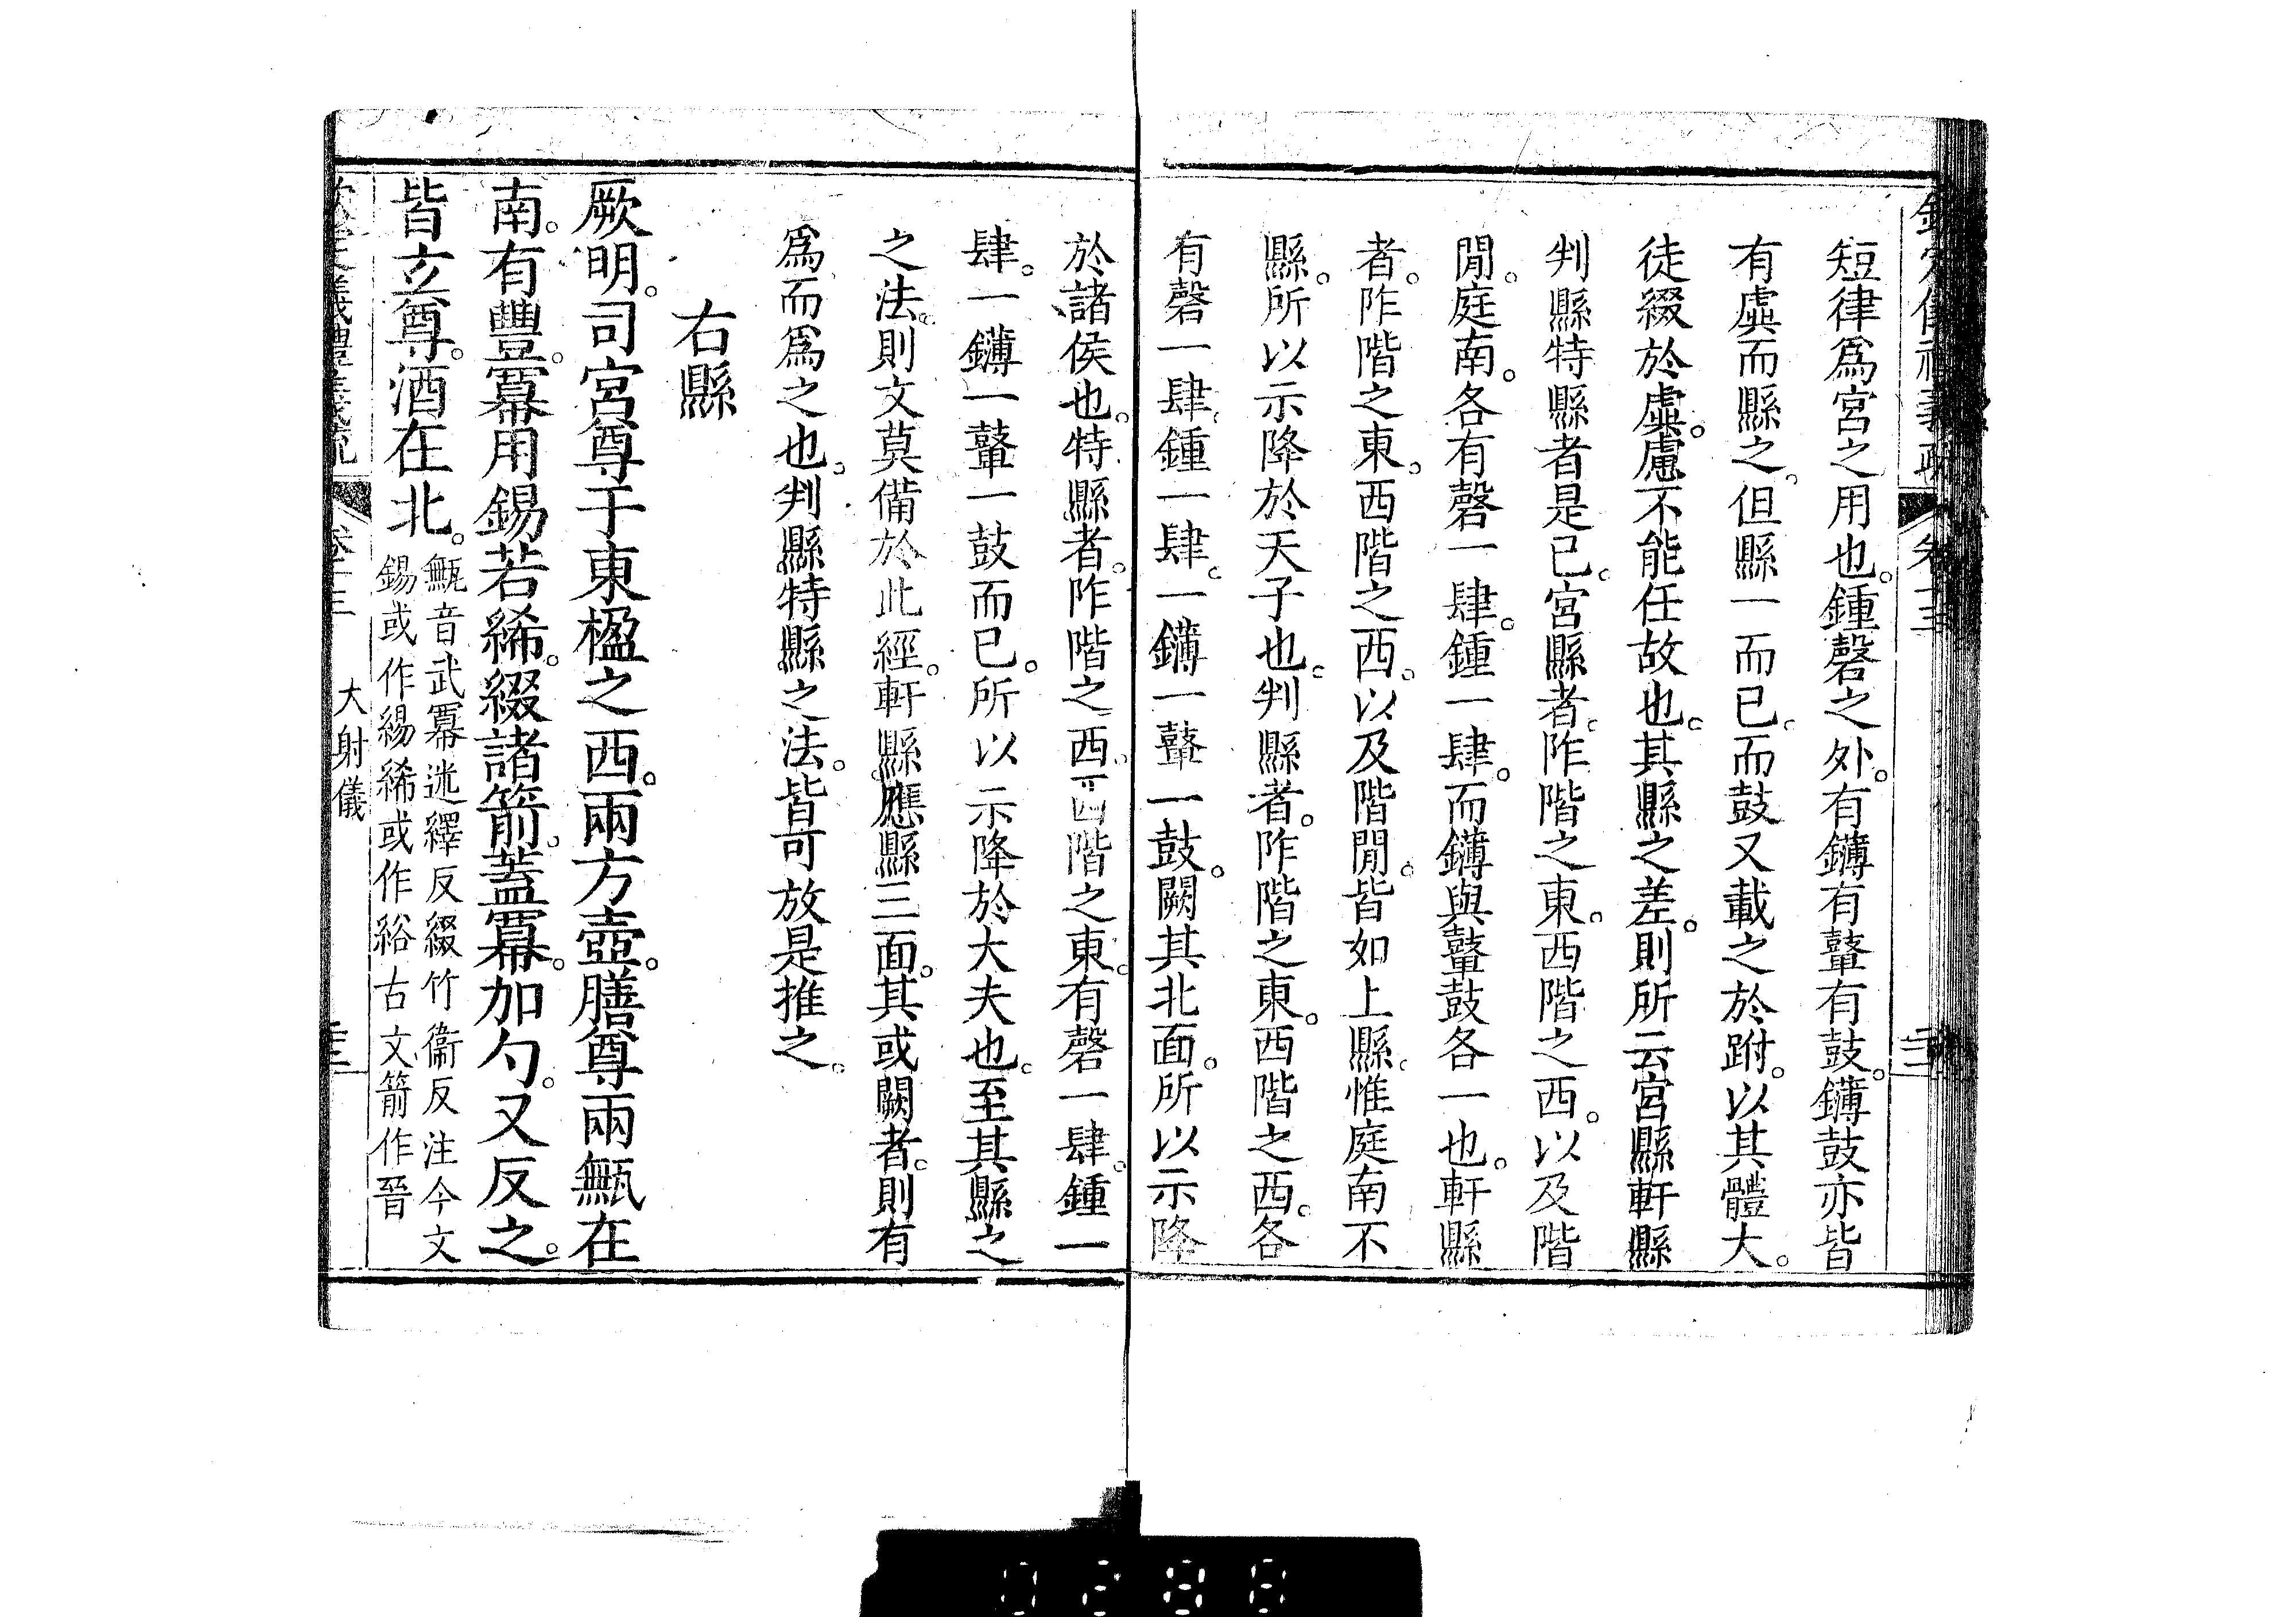 短律爲宮之用也。鍾磬之外。有鑮有鼛有鼓。鑮鼓亦皆
有虡而縣之。但縣一而已。而鼓又載之於跗。以其體大。
徒綴於虡。慮不能任故也。其縣之差。則所云宮縣軒縣
判縣特縣者是已。宮縣者。阼階之東。西階之西。以及階
閒。庭南。各有磬一肆。鍾一肆。而鑮與鼛鼓各一也。軒縣
者。阼階之東。西階之西。以及階閒。皆如上縣。惟庭南不
縣。所以示降於天子也。判縣者。阼階之東。西階之西。各
有磬一肆。鍾一肆。一鑮一鼛一鼓。闕其北面。所以示降
於諸侯也。特縣者。阼階之西。西階之東。有磬一肆。鍾一
肆。一鑮一鼛一鼓而已。所以示降於大夫也。至其縣之
之法。則文莫備於此經。軒縣。應縣三面。其或闕者。則有
爲而爲之也。判縣特縣之法。皆可放是推之。
右縣
厥明。司宮尊于東楹之西。兩方壺。膳尊兩甒在
南。有豐。冪用錫若絺。綴諸箭。蓋冪。加勺。又反之。
皆玄尊。酒在北。
甒音武冪迷繹反綴竹衞反注今文
錫或作緆絺或作綌古文箭作晉
大射儀
0288